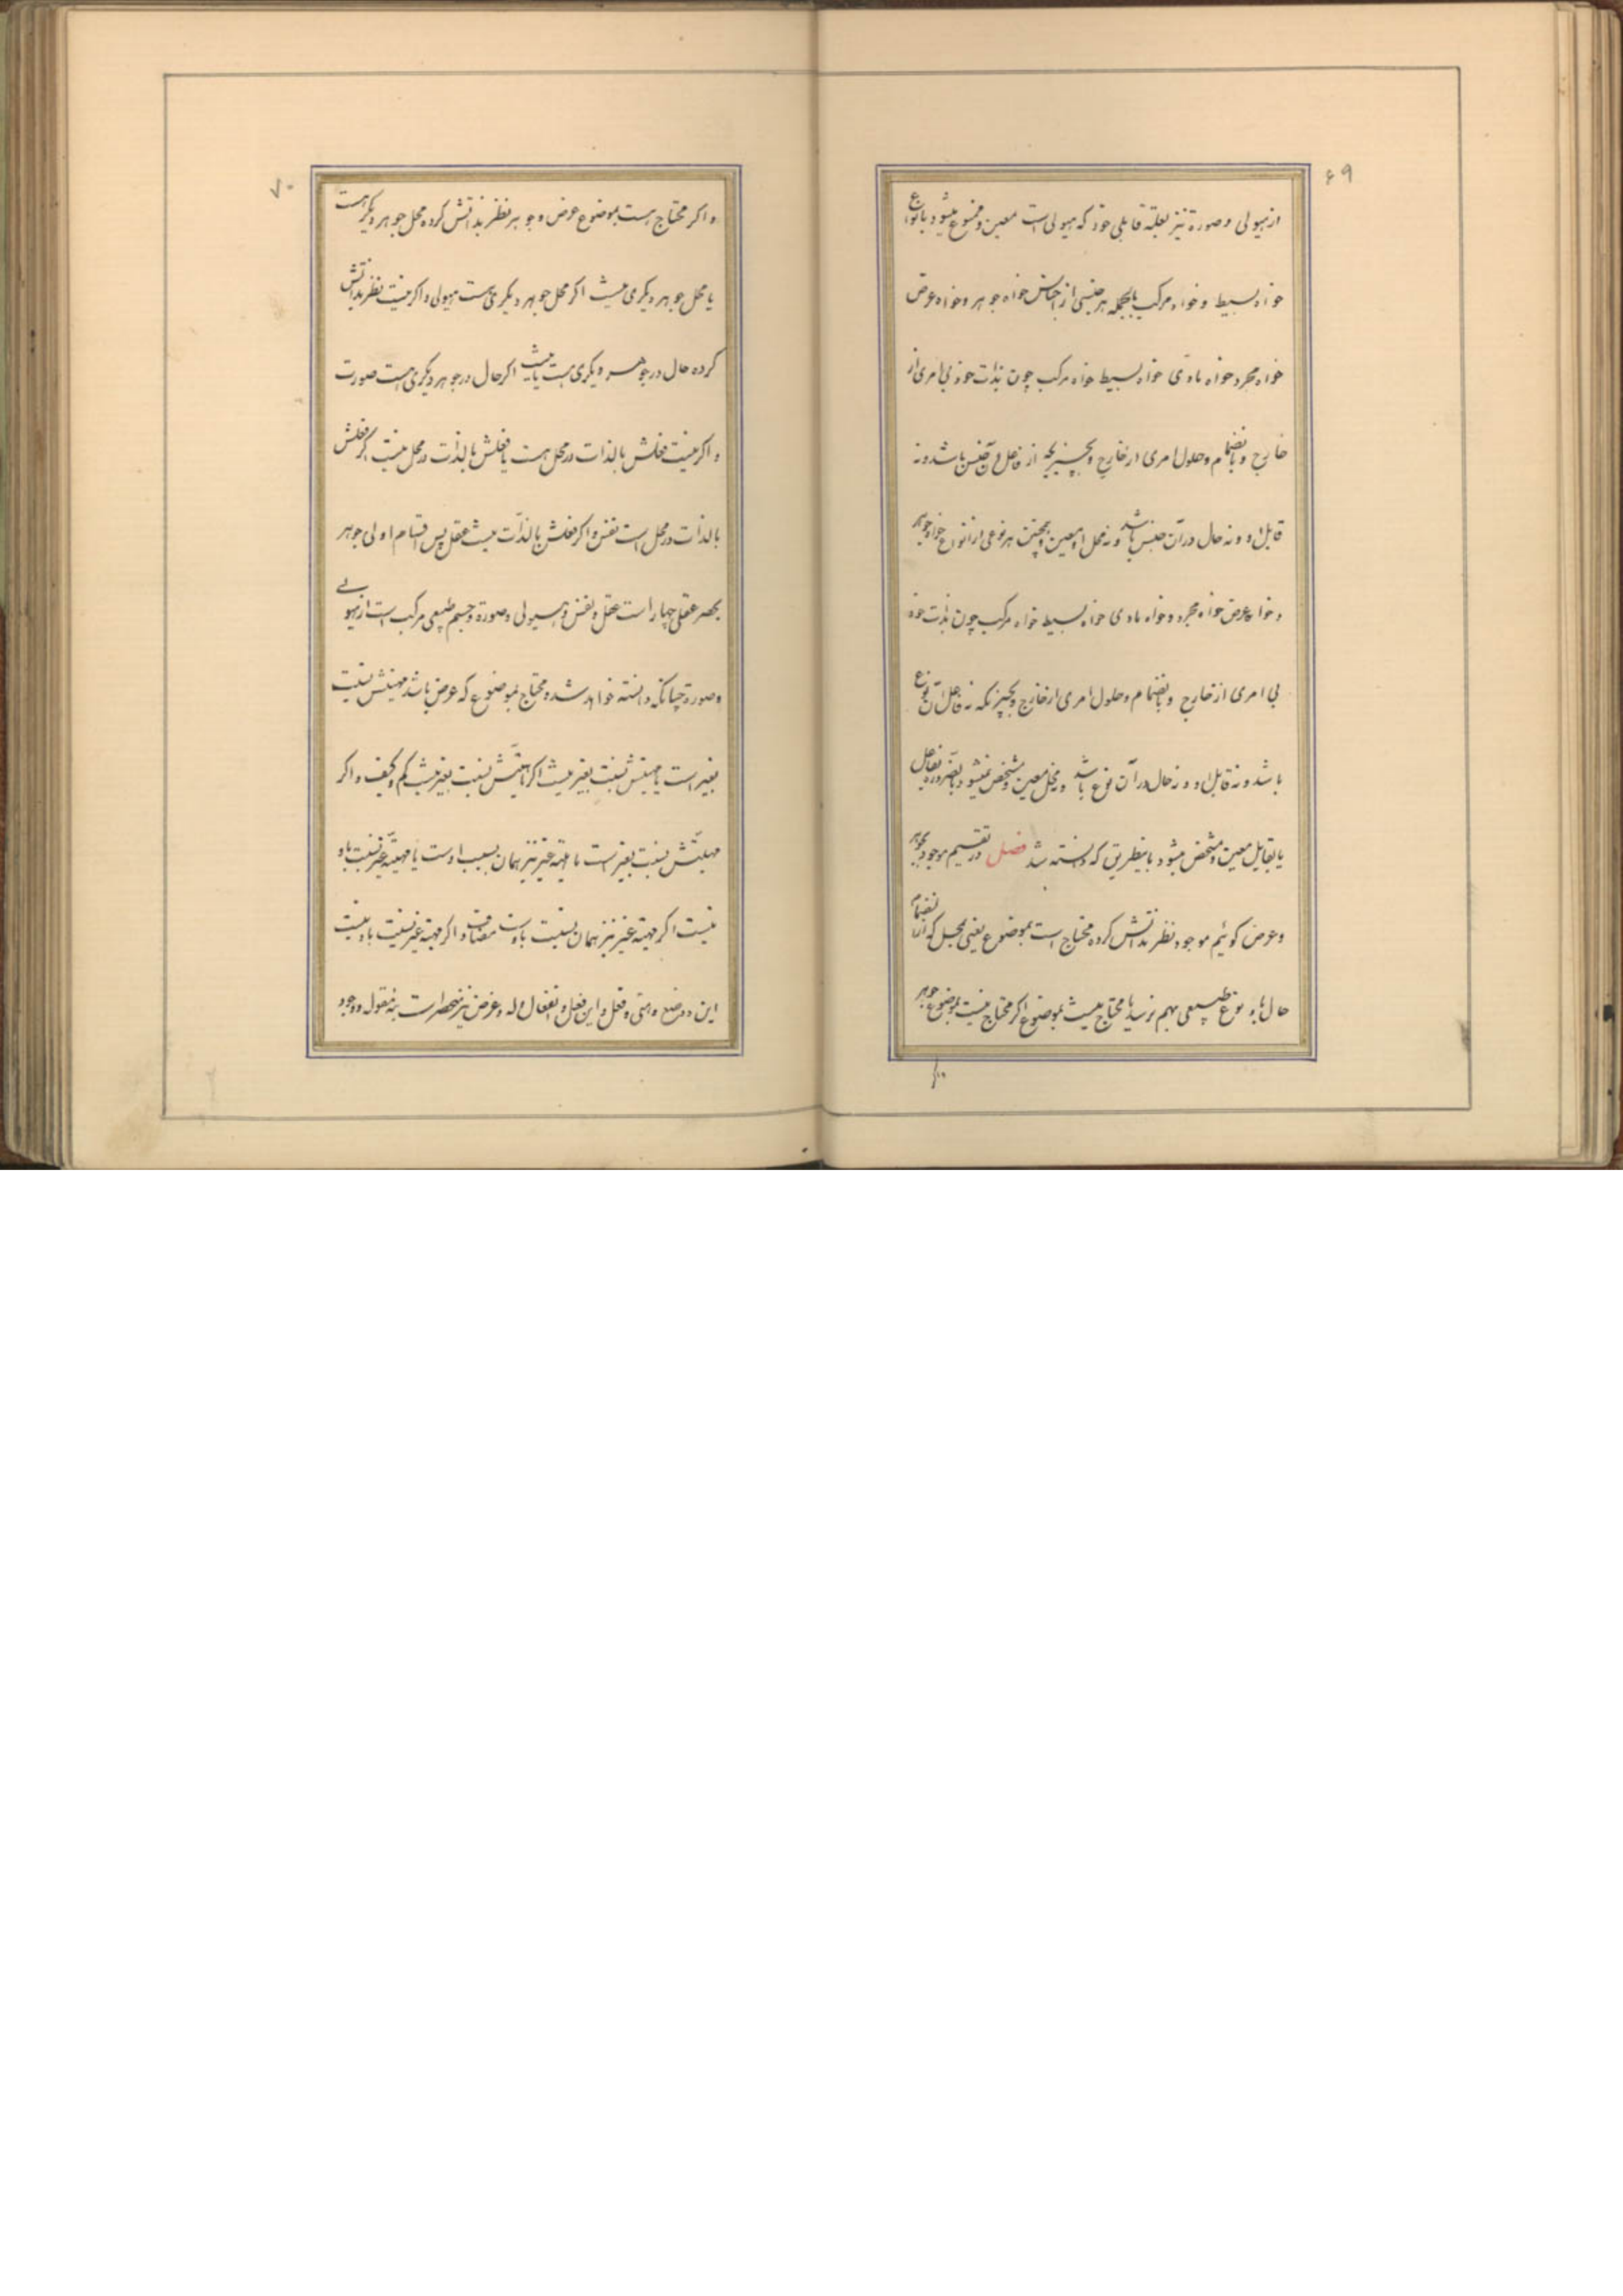 ۶۹
از هیولی و صورة نیز بعلّة قابلی خود که هیولی است معین و متنوع میشود بانواع
خواه بسیط و خواه مرکب بالجمله هر جنسی از اجناس خواه جوهر و خواه عرض
خواه مجرد خواه مادّی خواه بسیط خواه مرکب چون بذات خود بی امری از
خارج و بانضمام و حلول امری از خارج و بچیزیکه از فاعل آن جنس باشد و نه
قابل او و نه حال در آن جنس باشد و نه محل او معین و همچنین هر نوعی از انواع خواه جوهر
و خواه عرض خواه مجرد و خواه مادی خواه بسیط خواه مرکب چون بذات خود
بی امری از خارج و بانضمام و حلول امری از خارج و بچیزیکه نه فاعل آن نوع
باشد و نه قابل او و نه حال در آن نوع باشد و نه محل معین و مشخص نمیشود بالضروره بفاعل
یا بقابل معین و مشخص میشود باینطریق که دانسته شد فصل در تقسیم موجود بجوهر
و عرض کوئیم موجود نظر بذاتش کرده محتاج است بموضوع یعنی بمحلی که از انضمام
حال باو نوع طبیعی بهم نرسد یا محتاج نیست بموضوع اکر محتاج نیست بموضوع جوهر
۷۰
و اکر محتاج هست بموضوع عرض و جوهر نظر بذاتش کرده محل جوهر دیکر هست
یا محل جوهر دیکری نیست اکر محل جوهر دیکری هست هیولی و اکر نیست نظر بذاتش
کرده حال در جوهر دیکری هست یا نیست اکر حال در جوهر دیکری هست صورت
و اکر نیست فعلش بالذات در محل هست یا فعلش بالذات در محل نیست اکر فعلش
بالذات در محل است نفس و اکر فعلش بالذات نیست عقل پس اقسام اولی جوهر
بحصر عقلی چهار است عقل و نفس و هیولی و صورة و جسم طبیعی مرکب است از هیولی
و صورة چنانکه دانسته خواهد شد و محتاج بموضوع که عرض باشد مهیتش نسبت
بغیر است یا مهیتش نسبت بغیر نیست اکر مهیتش نسبت بغیر نیست کم و کیف و اکر
مهیتش نسبت بغیر است یا مهیّة غیر نیز همان بسبب اوست یا مهیّة غیر نسبت باو
نیست اکر مهیة غیر نیز همان نسبت باوست مضاف و اکر مهیة غیر نسبت باو نیست
این و وضع و متی و فعل و این فعل و انفعال و له و عرض نیز منحصر است بنه مقوله و وجود